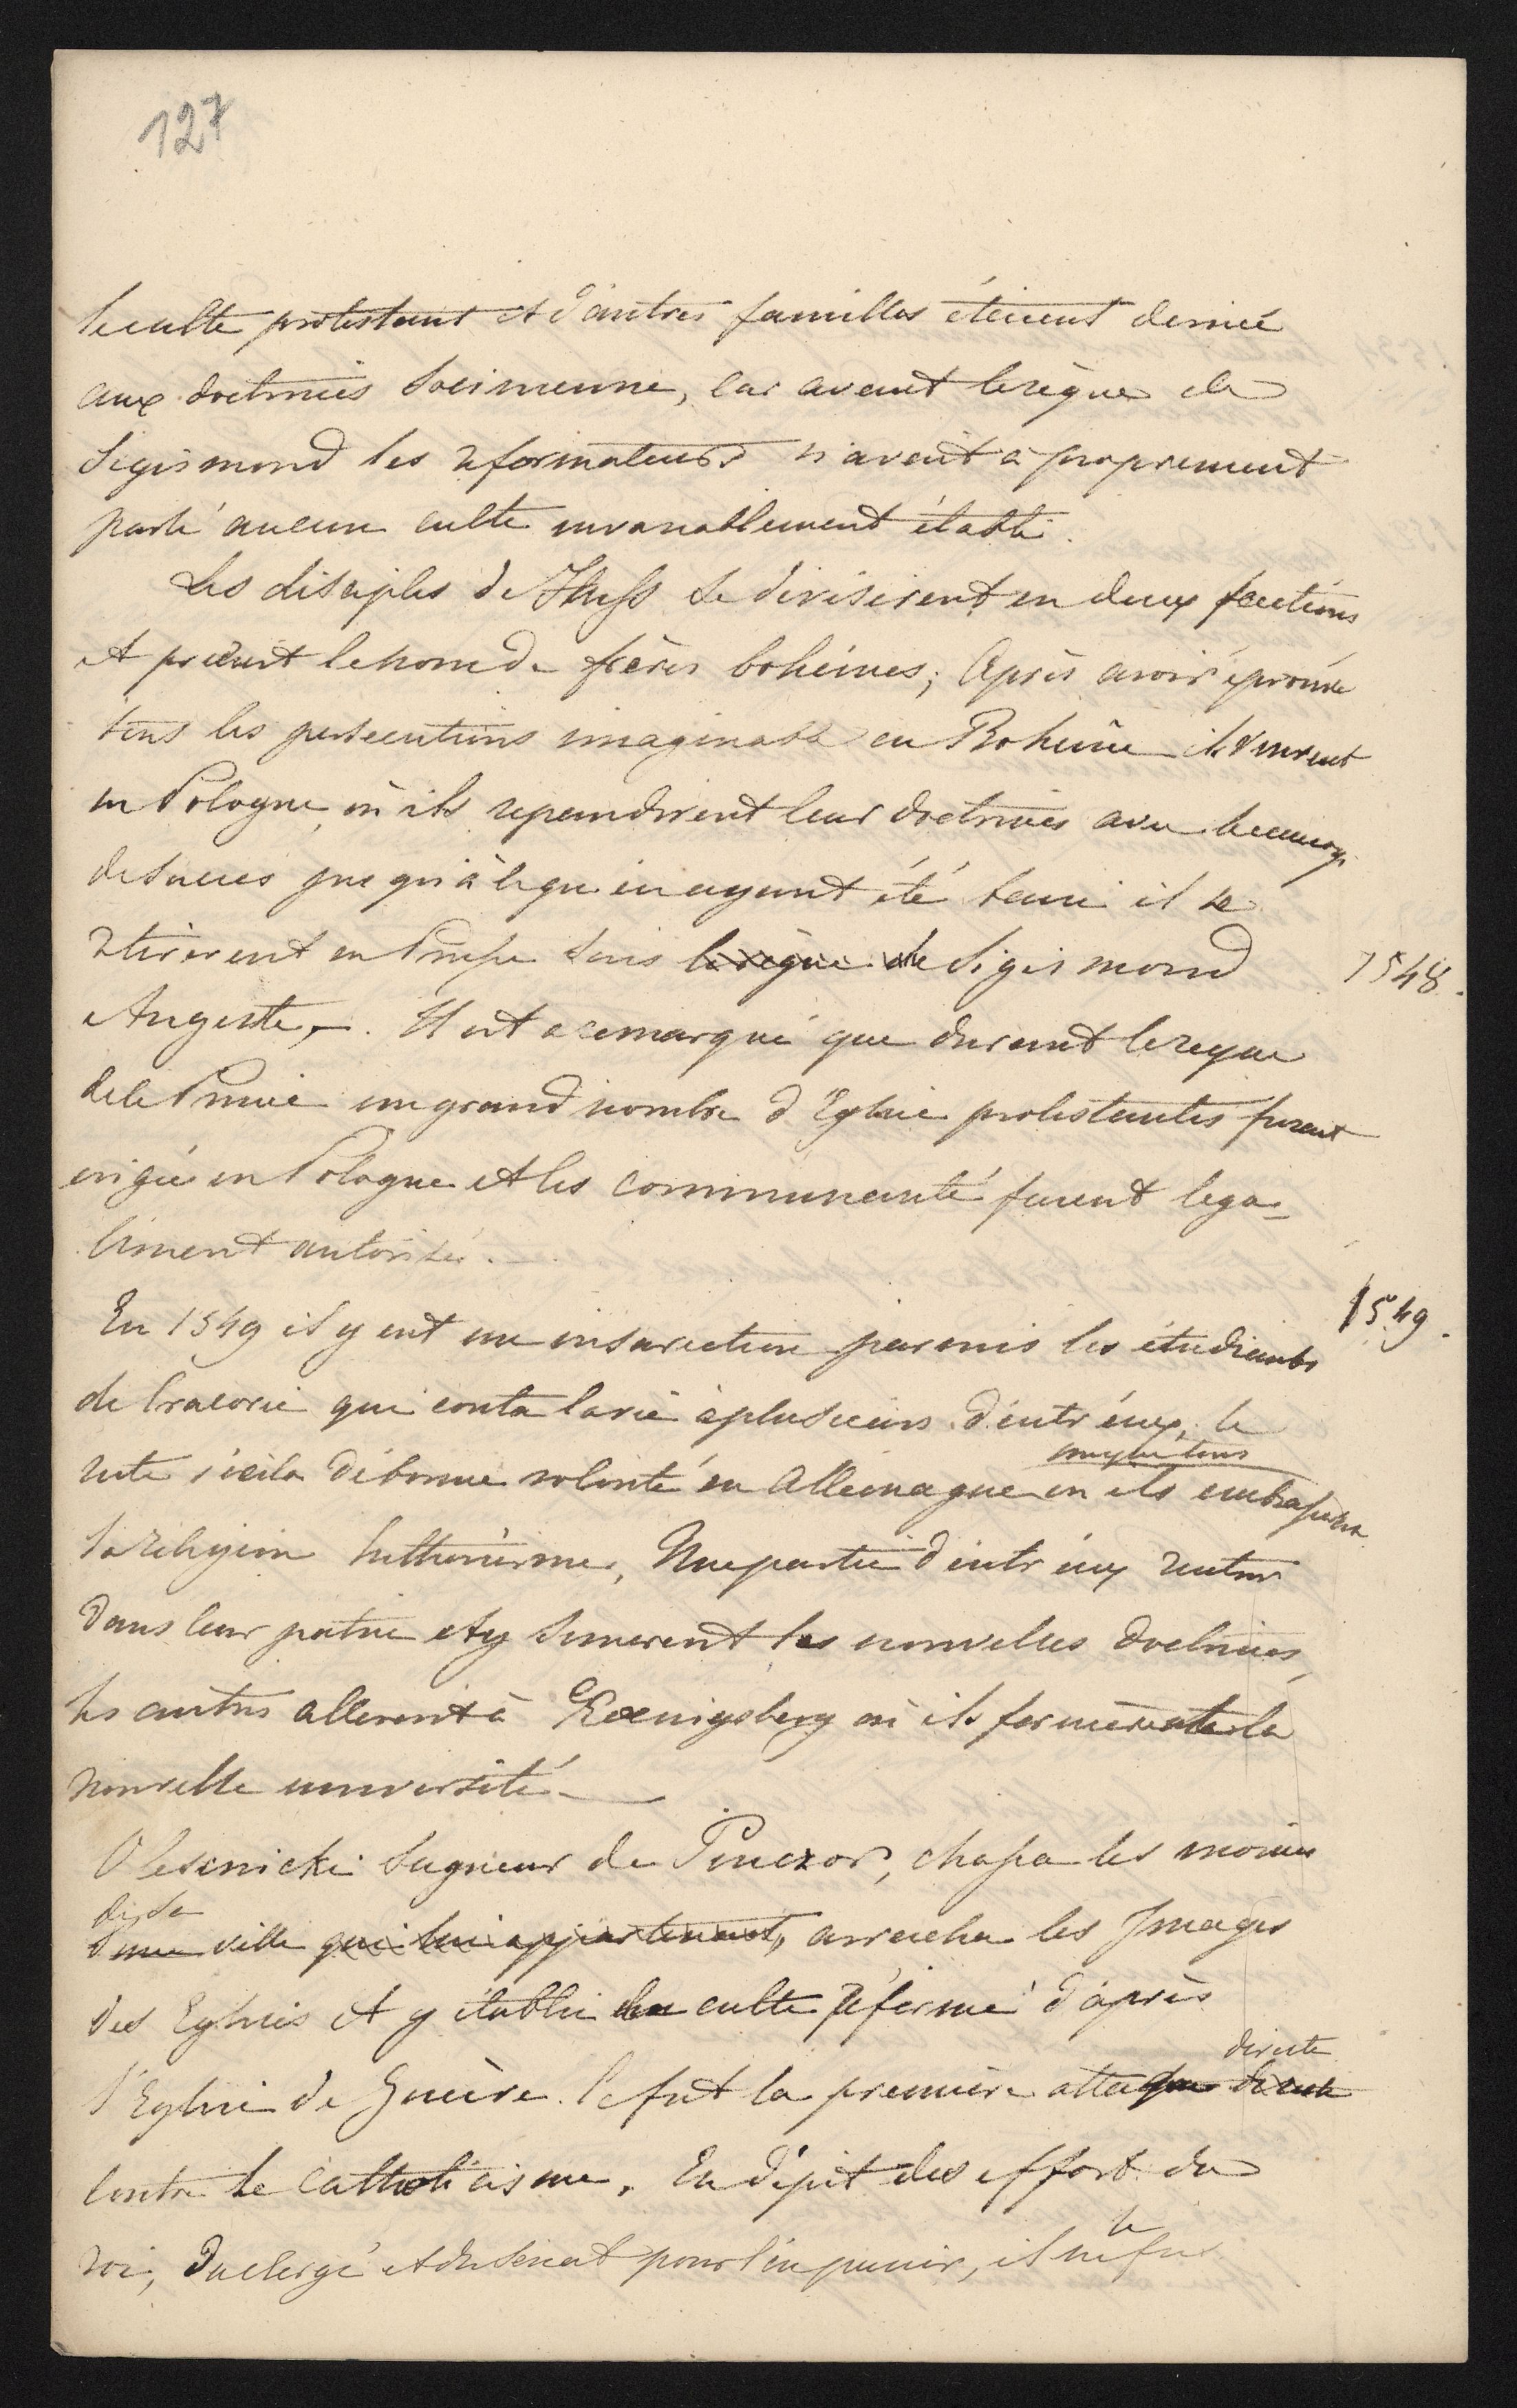 127
le culte protestant et d'autres familles étaient
aux doctrines Socinienne, Car avant le règne de
Sigismond les reformateurs n'avait à proprement
parlé aucun culte invariablement établi.
Les disciples de Huss se divisèrent en deux factions
et prirent le nom de frères bohèmes; Après avoir éprouvé
tous les persecutions imaginable en Boheme ils vinrent
en Pologne où ils repandirent leur doctrines avec beaucoup
de succes jusqu'à ce qu'en ayant été banni il se
retirerent en Prusse sous le règne de Sigismond
1548.
Auguste. Il est a remarqué que durant le regne
de le Prince un grand nombre d'Eglise protestantes furent
erigée en Pologne et les communauté furent lega-
lement autorisée.
1549.
En 1549 il y eut une insurection parmis les étudiants
de Cracovie qui couta la vie à plusieurs d'entr'eux, le
presque tous
reste s'exila de bonne volonté en Allemagne ou ils embrasserent
la religion Una partie d'entr'eux rentra
dans leur patrie et y semerent les nouvelles doctrines,
les autres allerent à Koenigsberg où ils formèrent la
nouvelle université.
Olesnicki Seigneur de Pinczow, chassa les moines
de sa
d'une ville qui lui appartenait, arracha les Images
des Eglises et y établi le culte réformé d'après
l'Eglise de Genève. Ce fut la première attaque
directe
contre le Catholicisme. En dépit des effort du
roi, du clergé et du senat pour l'en punir, il ne fut
le